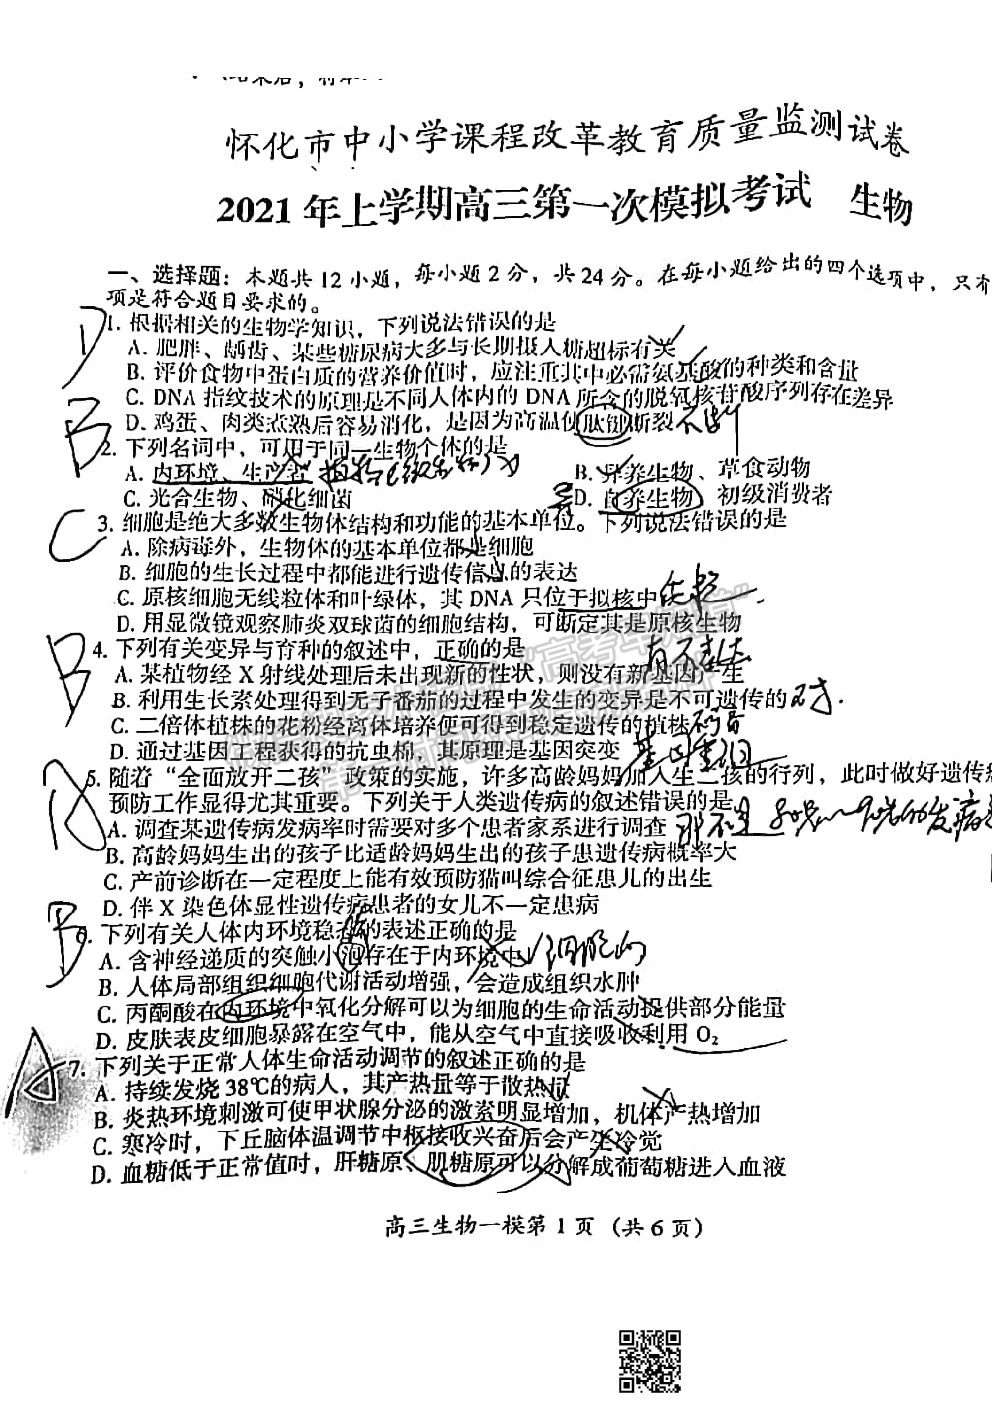 怀化市中小学课程改革教育质量监测试卷
2021年上学期高三第一次模拟考试 生物
一、选择题：本题共12小题，每小题2分，共24分。在每小题给出的四个选项中，只有
项是符合题目要求的。
D
1. 根据相关的生物学知识，下列说法错误的是
A. 肥胖、龋齿、某些糖尿病大多与长期摄入糖超标有关
B. 评价食物中蛋白质的营养价值时，应注重其中必需氨基酸的种类和含量
C. DNA 指纹技术的原理是不同人体内的 DNA 所含的脱氧核苷酸序列存在差异
D. 鸡蛋、肉类煮熟后容易消化，是因为高温使肽键断裂 不断
B
2. 下列名词中，可用于同一生物个体的是
A. 内环境、生产者
B. 异养生物、草食动物
C. 光合生物、硝化细菌
D. 自养生物、初级消费者
C
3. 细胞是绝大多数生物体结构和功能的基本单位。下列说法错误的是
A. 除病毒外，生物体的基本单位都是细胞
B. 细胞的生长过程中都能进行遗传信息的表达
C. 原核细胞无线粒体和叶绿体，其 DNA 只位于拟核中
D. 用显微镜观察肺炎双球菌的细胞结构，可断定其是原核生物
B
4. 下列有关变异与育种的叙述中，正确的是
A. 某植物经 X 射线处理后未出现新的性状，则没有新基因产生
B. 利用生长素处理得到无子番茄的过程中发生的变异是不可遗传的 对.
C. 二倍体植株的花粉经离体培养便可得到稳定遗传的植株
D. 通过基因工程获得的抗虫棉，其原理是基因突变 基因重组
A
5. 随着“全面放开二孩”政策的实施，许多高龄妈妈加入生二孩的行列，此时做好遗传病
预防工作显得尤其重要。下列关于人类遗传病的叙述错误的是
A. 调查某遗传病发病率时需要对多个患者家系进行调查
B. 高龄妈妈生出的孩子比适龄妈妈生出的孩子患遗传病概率大
C. 产前诊断在一定程度上能有效预防猫叫综合征患儿的出生
D. 伴 X 染色体显性遗传病患者的女儿不一定患病
B
6. 下列有关人体内环境稳态的表述正确的是
A. 含神经递质的突触小泡存在于内环境中 细胞内
B. 人体局部组织细胞代谢活动增强，会造成组织水肿
C. 丙酮酸在内环境中氧化分解可以为细胞的生命活动提供部分能量
D. 皮肤表皮细胞暴露在空气中，能从空气中直接吸收利用 O₂
A
7. 下列关于正常人体生命活动调节的叙述正确的是
A. 持续发烧 38℃的病人，其产热量等于散热量
B. 炎热环境刺激可使甲状腺分泌的激素明显增加，机体产热增加
C. 寒冷时，下丘脑体温调节中枢接收兴奋后会产生冷觉
D. 血糖低于正常值时，肝糖原、肌糖原可以分解成葡萄糖进入血液
高三生物一模第 1 页（共 6 页）